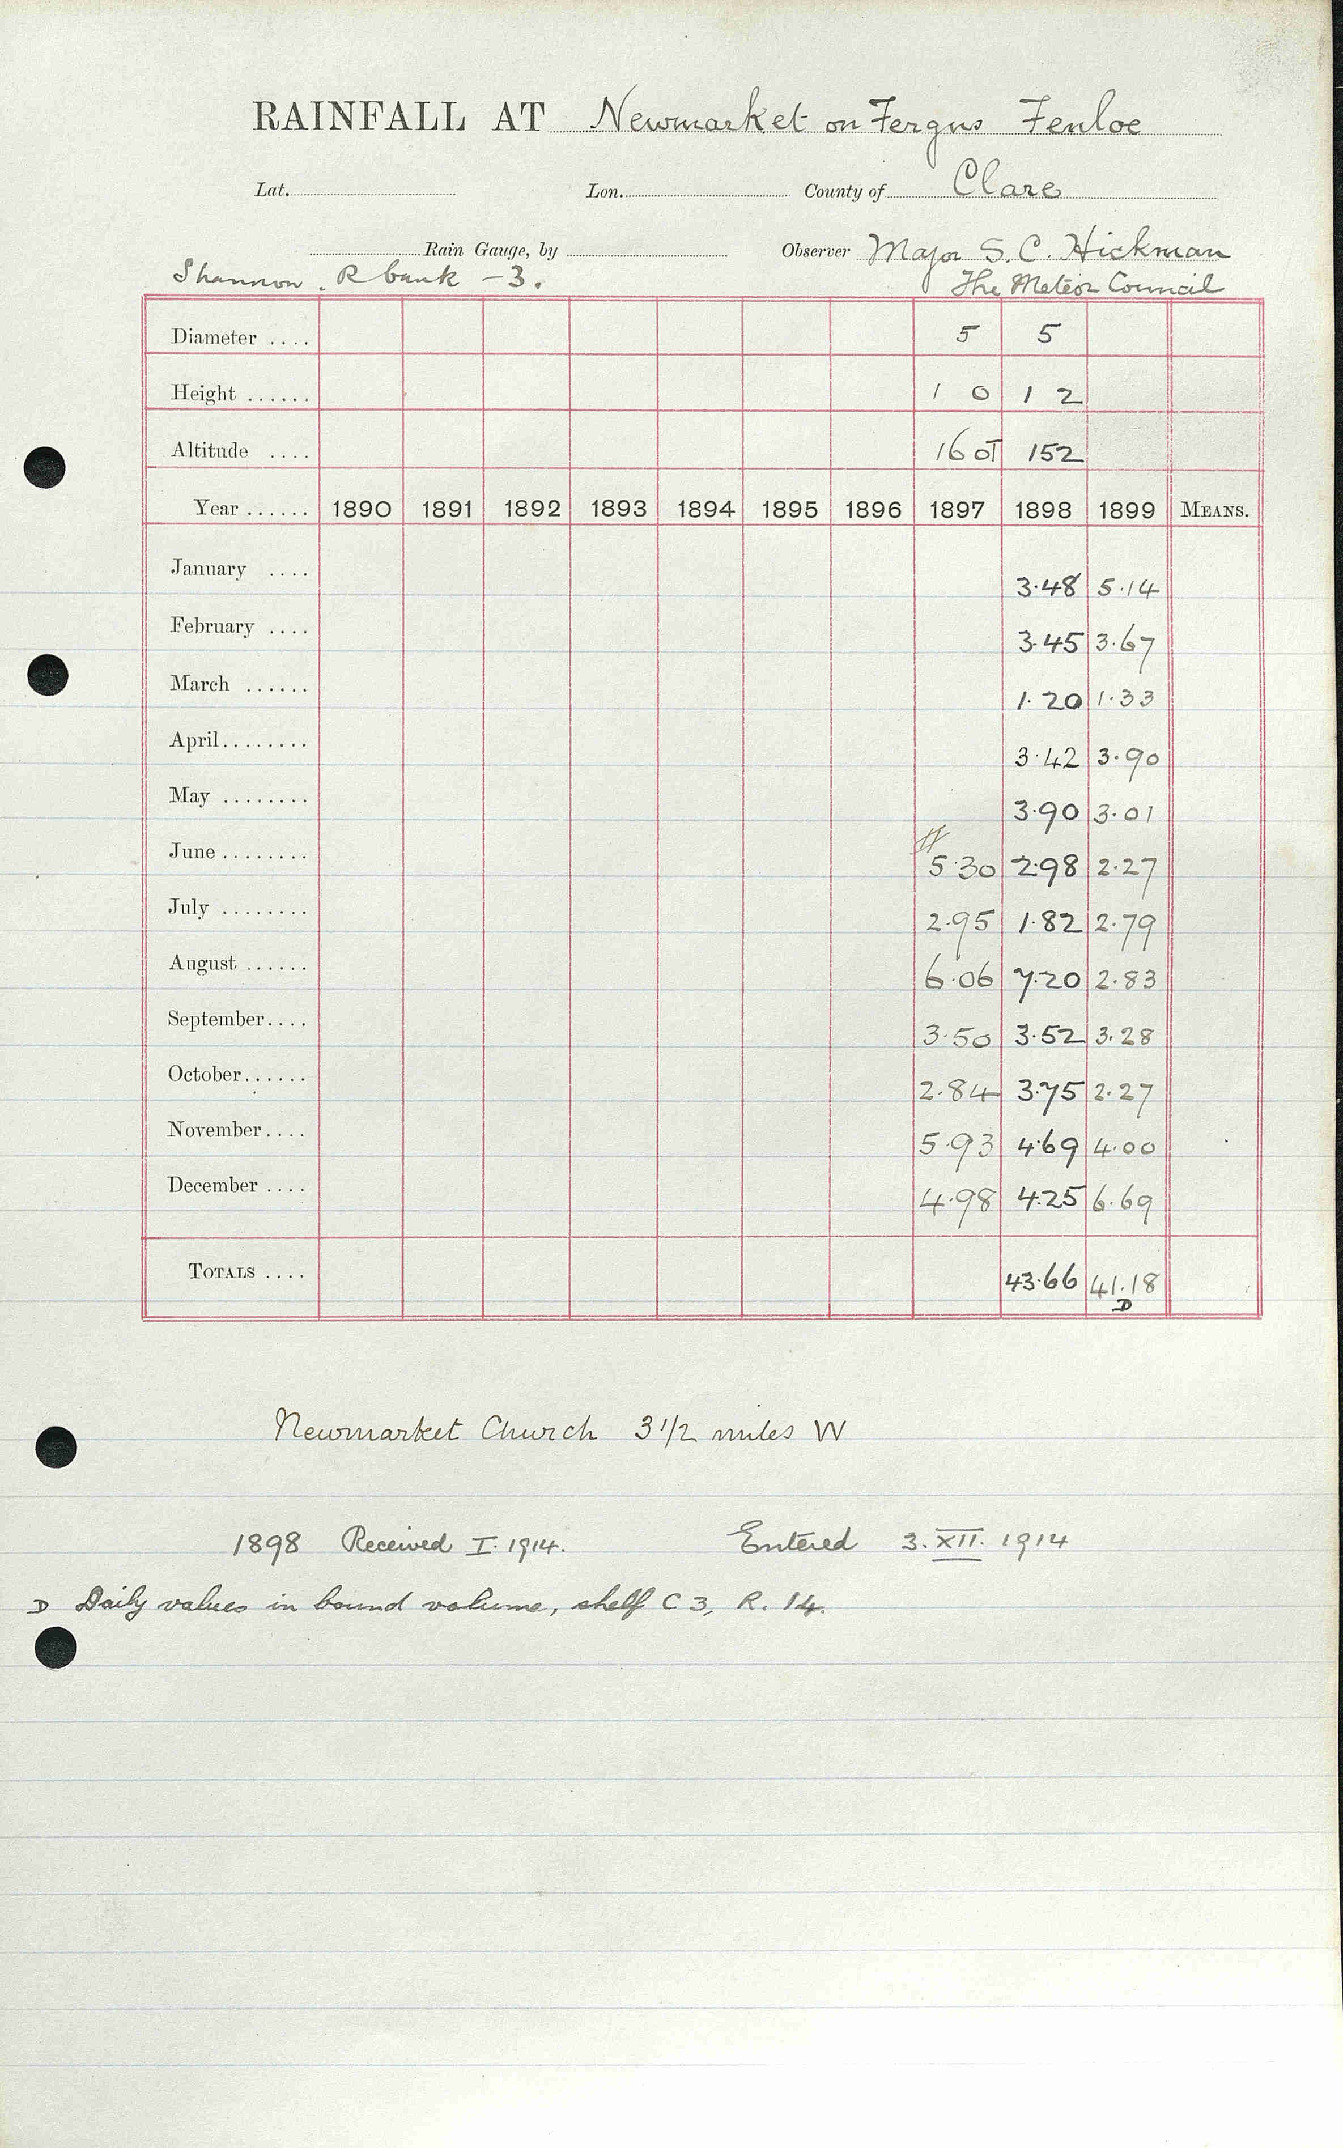 RAINFALL AT Newmarket on Fergus Fenloe
Lat. Lon. County of Clare
Rain Gauge, by Observer Major S. C. Hickman
Shannon. R bank - 3. The Meteor Council
Diameter .... 5 5
Height ...... 1 0 1 2
Altitude .... 160T 152
Year ...... 1890 1891 1892 1893 1894 1895 1896 1897 1898 1899 MEANS.
January .... 3.48 5.14
February .... 3.45 3.67
March ...... 1.20 1.33
April........ 3.42 3.90
May ........ 3.90 3.01
June ........ 5.30 2.98 2.27
July ........ 2.95 1.82 2.79
August ...... 6.06 7.20 2.83
September.... 3.50 3.52 3.28
October...... 2.84 3.75 2.27
November.... 5.93 4.69 4.00
December .... 4.98 4.25 6.69
TOTALS .... 43.66 41.18
D
Newmarket Church 3 1/2 miles W
1898 Received I. 1914. Entered 3. XII. 1914
D Daily values in bound volume, shelf C 3, R. 14.